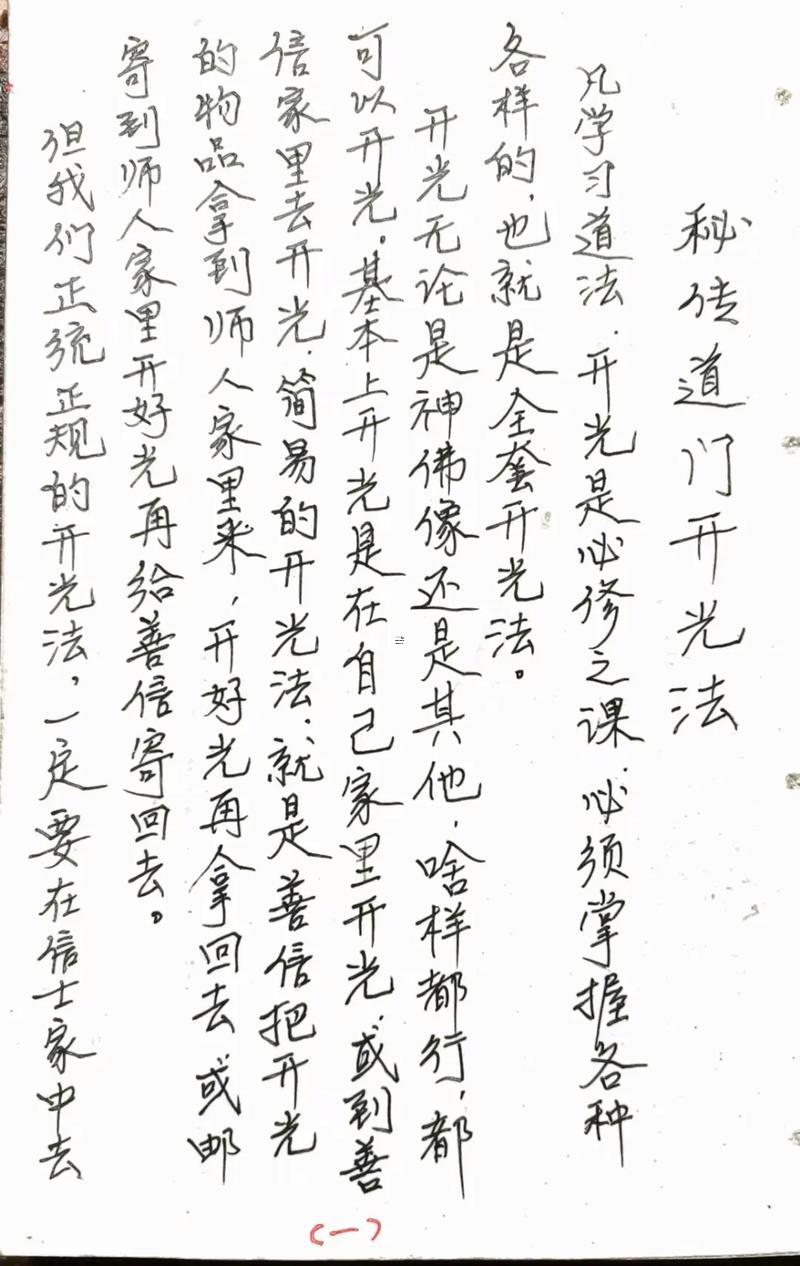 秘传道门开光法
凡学习道法.开光是必修之课.必须掌握各种
各样的.也就是全套开光法。
开光无论是神佛像还是其他.啥样都行.都
可以开光.基本上开光是在自己家里开光.或到善
信家里去开光.简易的开光法.就是善信把开光
的物品拿到师人家里来,开好光再拿回去.或邮
寄到师人家里开好光再给善信寄回去。
但我们正统正规的开光法,一定要在信士家中去
(一)